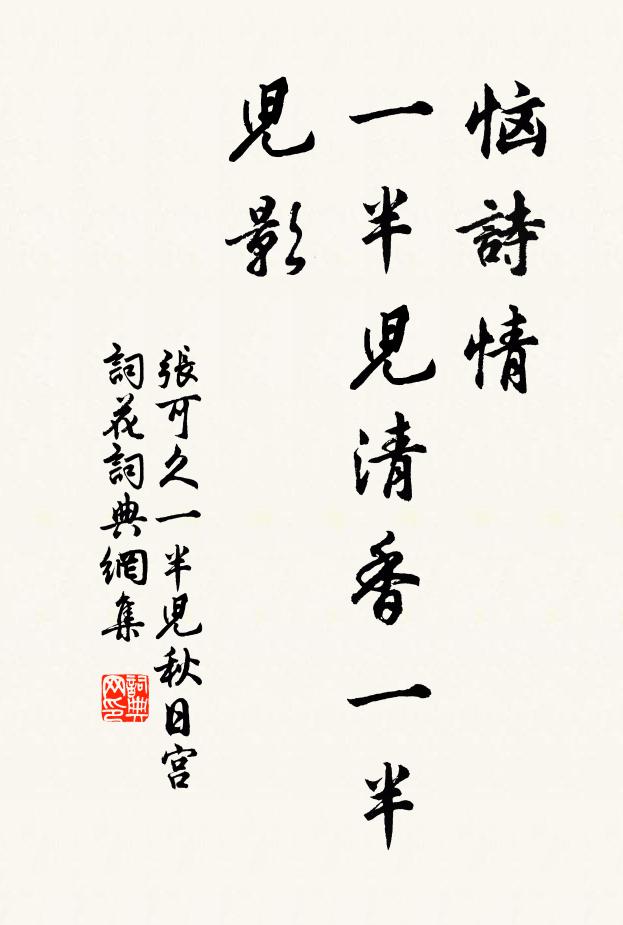 恼詩情
一半児清香一半
児影
張可久一半児秋日宫
詞花詞典網集
詞典
网印